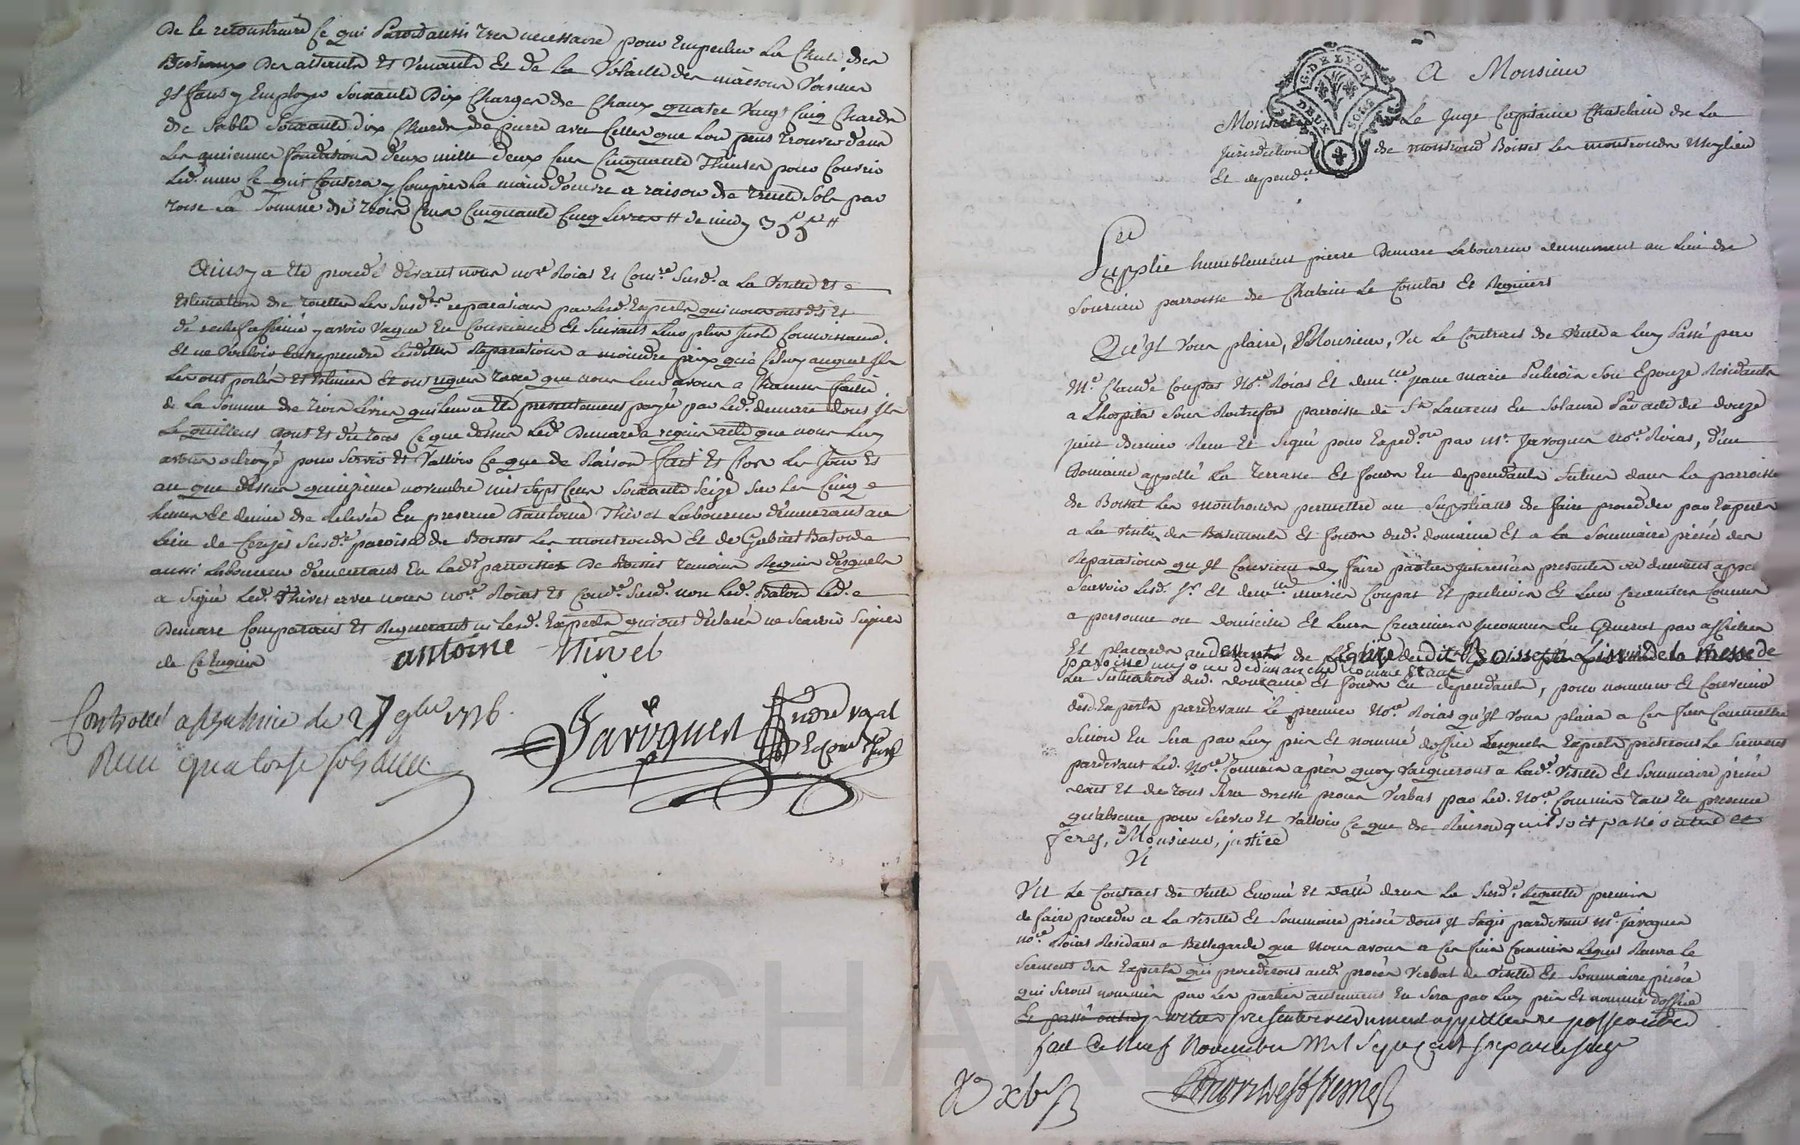 De le reconstruire Ce qui Paroit aussi tres necessaire pour Empecher La Chute des
Bestiaux des allants Et Venants Et de La Volaille des maisons Voisines
Jl faut y Employer Soixante Dix Charges de Chaux quatre Vingt Cinq Chards
de Sable Soixante dix Chards de pierre avec Celles que Lon peut trouver dans
Les anciennes fondations deux mille deux Cent Cinquante Thuiles pour Couvrir
Led. mur Ce qui Coutera y Compris La main d'oeuvre a raison de trente Sols par
toise La Somme de trois Cent Cinquante Cinq Livres cy 355
Ainsy a été procedé devant nous no.re Roial Et Com.re Susd. a La Visite Et
Estimation de toutes Les Susd.tes reparations par Lesd. Experts qui nous ont dit Et
de rechef affirmé y avoir Vaqué En Conscience Et Suivant Leur plus juste Connoissance,
Et ne Vouloir Entreprendre Lesdites Reparations a moindre prix que Celuy auquel Jls
Les ont portées Et Estimées Et ont requis taxe que nous Leur avons a Chacun faite
de La Somme de trois Livres qui Leur a été presentement payée par Led. demare dont Jls
Le quittent dont Et du tout Ce que dessus Led. Demare a requis acte que nous Luy
avons octroyé pour Servir Et Valloir Ce que de Raison fait Et Clos Les Jour Et
an que dessus quinzieme novembre mil Sept Cent Soixante Seize Sur Les Cinq
heures Et demie de Relevée En presence d'antoine Thivet Laboureur demeurant au
Lieu de Susd.te paroisse de Boisset Les montronds Et de Gabriel Batonde
aussi Laboureur demeurant En Lad. parroisse De Boisset temoins Requis desquels
a Signé Led. Thivet avec nous no.re Roial Et Com.re Susd. non Led. Led.
Demare Comparant Et Requerant ni Lesd. Experts qui ont declaré ne Scavoir Signer
de Ce Enquis
antoine Thivet
Controllé a le 27 9bre 1776.
Recu quatorze sols
Javogues
A Monsieur
G. DE LYON
DEUX SOLS
Monsieur Le Juge Capitaine Chatelain de La
Jurisdiction de montrond Boisset Les montronds Meylieu
Et depend.ces
Supplie humblement pierre Demare Laboureur demeurant au Lieu de
Sourieu parroisse de Chalain Le Comtal Et Regniers
Qu'Jl Vous plaise, Monsieur, Vu Le Contract de Vente a Luy Passé par
M.e Claude Coupat No.re Roial Et dem.lle jeane marie Son Epouze Residants
a Lhopital Sous Rochefort parroisse de S.t Laurent En Solaure Par acte du douze
juin dernier Recu Et Signé pour Exped.on par M.e Javogues No.re Roial, d'un
Domaine appellé La Terrasse Et fonds En dependants Situés dans La parroisse
de Boisset Les montronds permettre au Suppliant de faire proceder par Experts
a La Visite des Batiments Et fonds dud. domaine Et a La Sommaire prisée des
Reparations qu'Jl Convient dy faire parties Jnteressées presentes ou dument app.
Scavoir Lesd. S.r Et dem.lle mariés Coupat Et Et Leurs Creanciers Connus
a personne ou domicile Et Leurs Creanciers Jnconnus En General par affiches
Et placards au devant de Leglise dudit Boisset a Lissue de la messe de
paroisse un jour de dimanche comme Etant
La Situation dud. domaine Et fonds En dependants, pour nommer Et Convenir
desd. Experts pardevant Le premier No.re Roial qu'Jl Vous plaira a Ces fins Commettre
Sinon En Sera par Luy pris Et nommé doffice Lesquels Experts preteront Le Serment
pardevant Led. No.re Commis apres quoy Vaqueront a Lad. Visite Et Sommaire prisée
dont Et du tout Sera dressé proces Verbal par Led. No.re Commis tant En presence
qu'absence pour Servir Et Valloir Ce que de Raison quil soit passé outre Et
ferez, Monsieur, justice
Vu Le Contract de Vente Enoncé Et datté dans La Susd.te Requette permis
de faire proceder a La Visite Et Sommaire prisée dont Jl Sagit pardevant M.e Javogues
No.re Roial Residant a Bellegarde que Nous avons a Ces fins Commis Lequel Recevra Le
Serment des Experts qui procederont aud. proces Verbal de Visite Et Sommaire prisée
qui Seront nommés par Les parties autrement En Sera par Luy pris Et nommé doffice
fait Ce Neuf Novembre Mil Sept cent